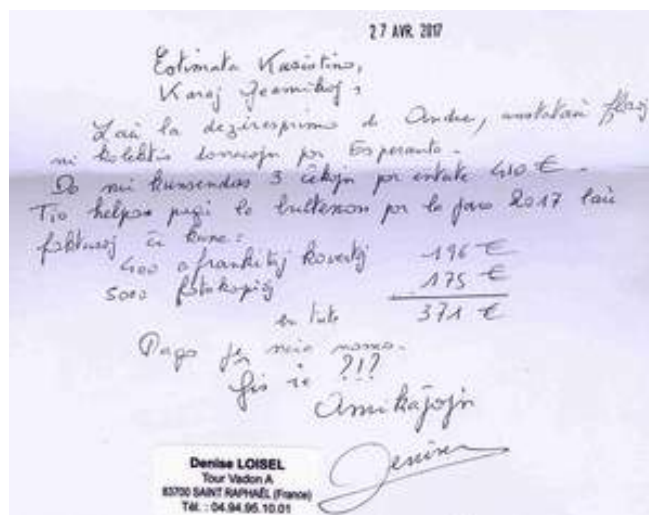 27 AVR. 2017
Estimata Kasistino,
Karaj Geamikoj,
Laŭ la deziresprimo de Andre, anstataŭ floroj
ni kolektis donacojn por Esperanto.
Do mi kunsendas 3 ĉekojn por entute 410 €.
Tio helpos pagi la bultenon por la jaro 2017 laŭ
fakturoj ĉi kune :
400 afrankitaj kovertoj 196 €
5000 fotokopioj 175 €
en tute 371 €
Pago je mia nomo.
Ĝis ie ?!?
Amikaĵojn
Denise
Denise LOISEL
Tour Vadon A
83700 SAINT RAPHAËL (France)
Tél. : 04.94.95.10.01